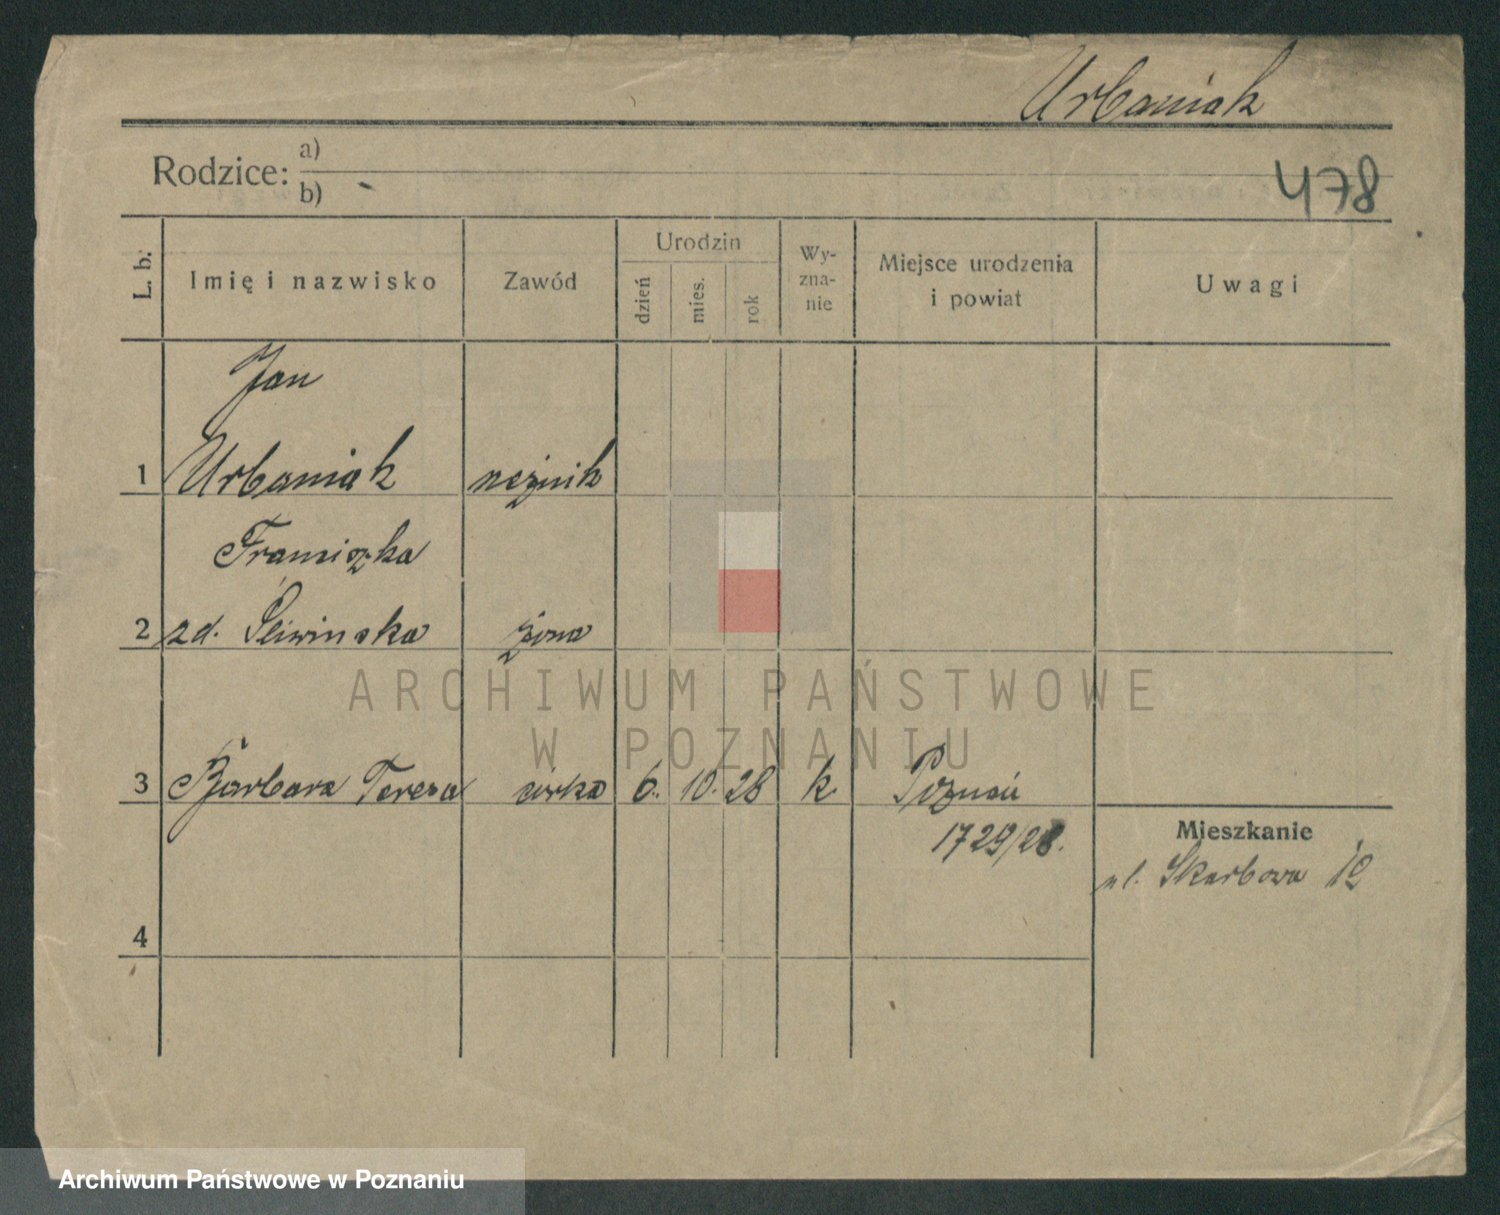 Urbaniak
Rodzice: a)
b)
478
L. b.
Imię i nazwisko
Zawód
Urodzin
dzień
mies.
rok
Wy-
zna-
nie
Miejsce urodzenia
i powiat
Uwagi
Jan
1 Urbaniak
Franciszka
2 zd. Śliwinska żona
3 Barbara Teresa córka 6. 10. 28 k. Poznań
1729/28.
Mieszkanie
ul. Skarbowa 12
4
ARCHIWUM PAŃSTWOWE
W POZNANIU
Archiwum Państwowe w Poznaniu